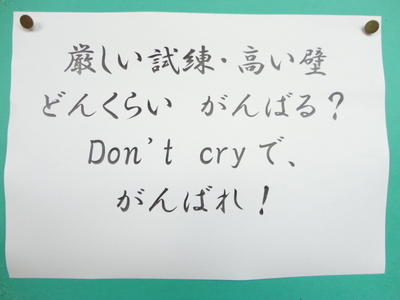 厳しい試練・高い壁
どんくらい がんばる?
Don't cryで、
がんばれ!